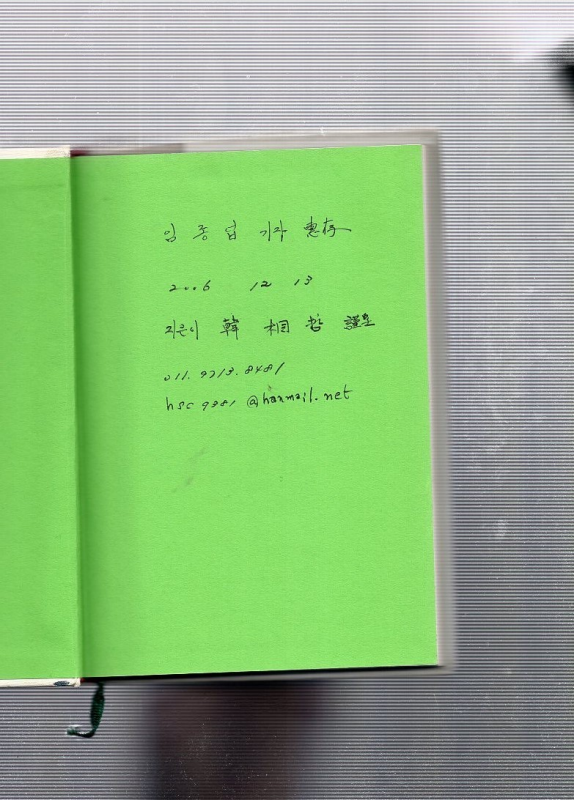 임 종 업 기자 惠存
2006 12 13
지은이 韓 相 哲 謹呈
011. 9313. 8481
hsc9381@hanmail.net